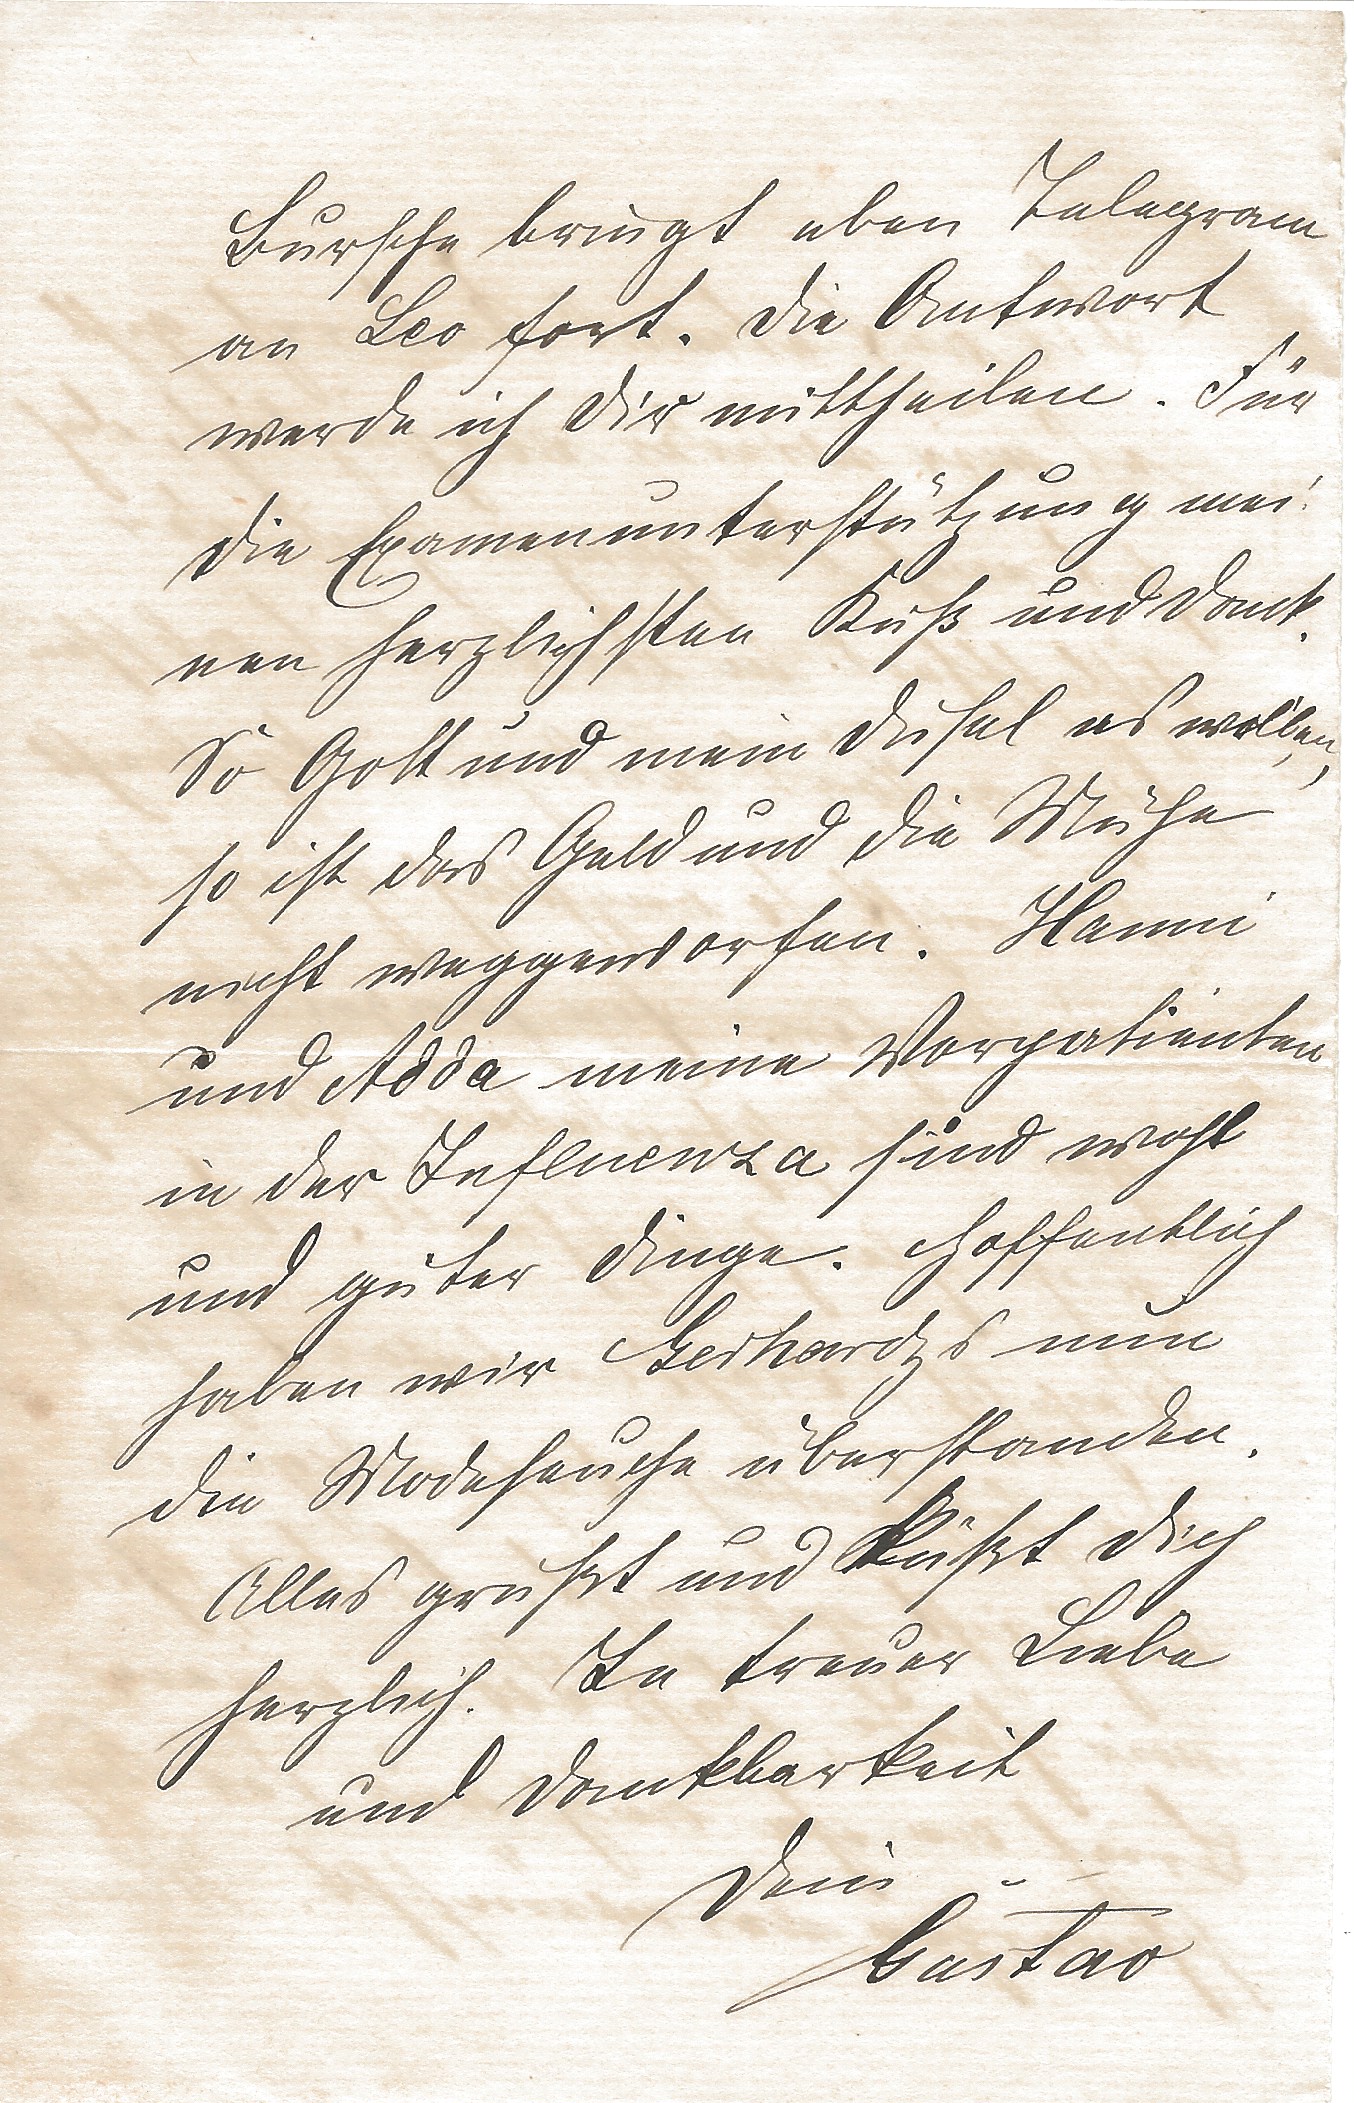 Bursche bringt eben Telegram
an Leo fort. Die Antwort
werde ich Dir mittheilen. Für
die Examenunterstützung mei¬
nen herzlichsten Kuß und Dank.
So Gott und mein Dusel es wollen,
so ist das Geld und die Mühe
nicht weggeworfen. Hanni
und Adda meine Vorpatienten
in der Influenza sind wohl
und guter Dinge. Hoffentlich
haben wir Gerhardts nun
die Modeseuche überstanden.
Alles grüßt und küßt Dich
herzlich. In treuer Liebe
und Dankbarkeit
Dein
Gustav